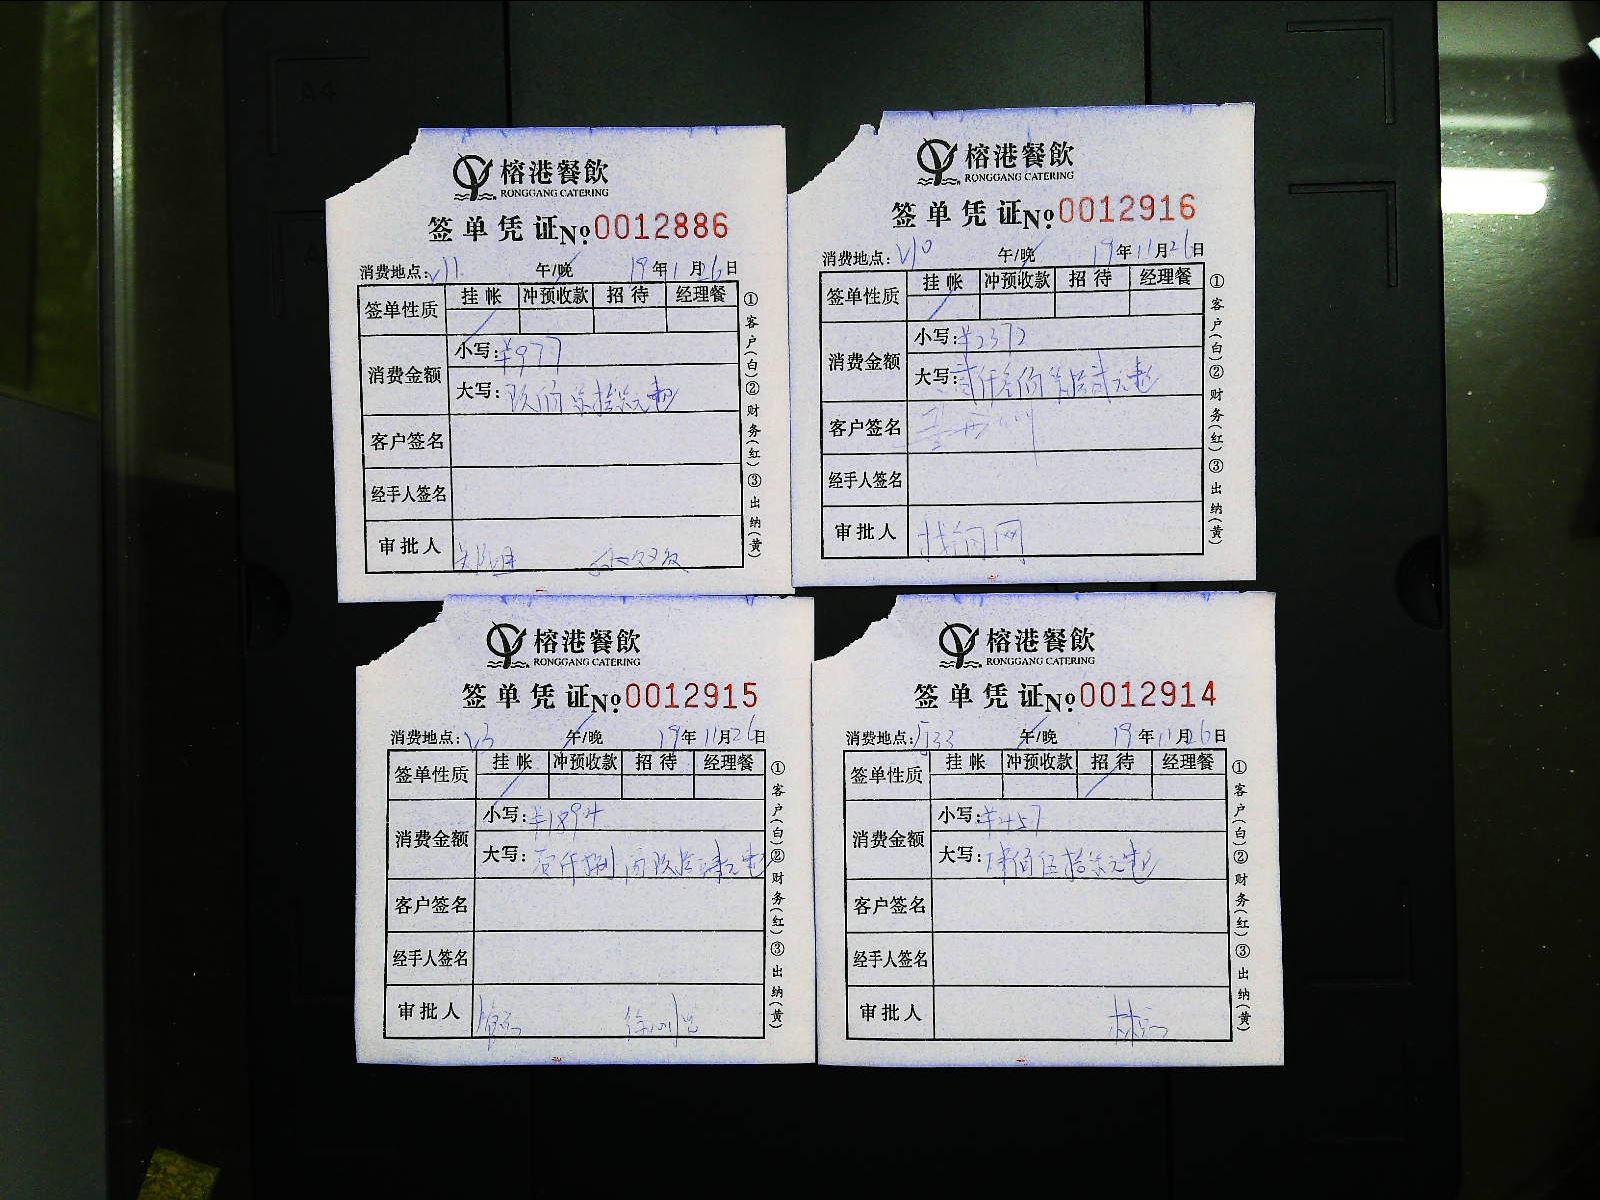 榕港餐飲
RONGGANG CATERING
签单凭证 No 0012886
消费地点: V11. 午/晚 19年11月26日
签单性质 挂帐 冲预收款 招待 经理餐
消费金额 小写: ¥977
大写: 玖佰柒拾柒元整
客户签名
经手人签名
审批人
①客户(白)②财务(红)③出纳(黄)
榕港餐飲
RONGGANG CATERING
签单凭证 No 0012916
消费地点: V10 午/晚 19年11月26日
签单性质 挂帐 冲预收款 招待 经理餐
消费金额 小写: ¥2372
大写: 贰仟叁佰柒拾贰元整
客户签名
经手人签名
审批人
①客户(白)②财务(红)③出纳(黄)
榕港餐飲
RONGGANG CATERING
签单凭证 No 0012915
消费地点: V3 午/晚 19年11月26日
签单性质 挂帐 冲预收款 招待 经理餐
消费金额 小写: ¥1894
大写: 壹仟捌佰玖拾肆元整
客户签名
经手人签名
审批人
①客户(白)②财务(红)③出纳(黄)
榕港餐飲
RONGGANG CATERING
签单凭证 No 0012914
消费地点: 午/晚 19年11月26日
签单性质 挂帐 冲预收款 招待 经理餐
消费金额 小写: ¥457
大写: 肆佰伍拾柒元整
客户签名
经手人签名
审批人
①客户(白)②财务(红)③出纳(黄)